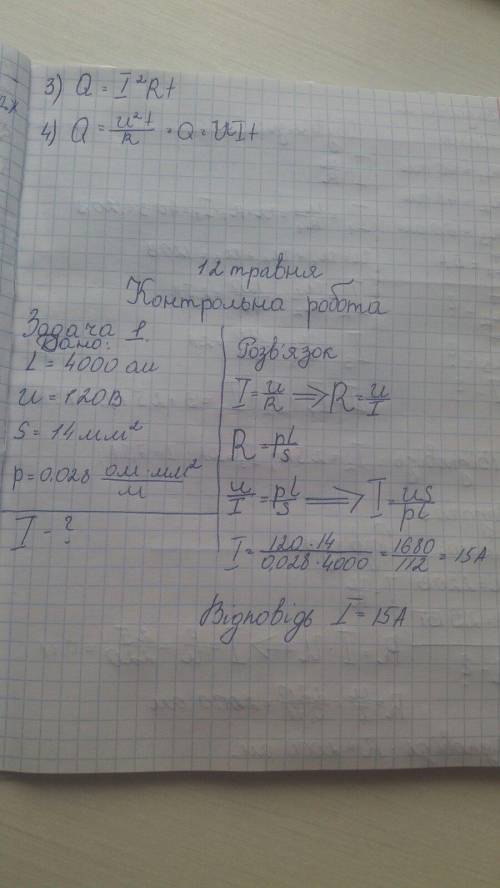 3) Q = I²Rt
4) Q = u²t/R = Q = UIt
12 травня
Контрольна робота
Задача 1.
Дано:
L = 4000 ом
u = 120В
S = 14 мм²
p = 0.028 ом·мм²/м
I - ?
Розв'язок
I = u/R ⟹ R = u/I
R = pl/s
u/I = pl/s ⟹ I = us/pl
I = 120·14/0,028·4000 = 1680/112 = 15А
Відповідь I = 15А